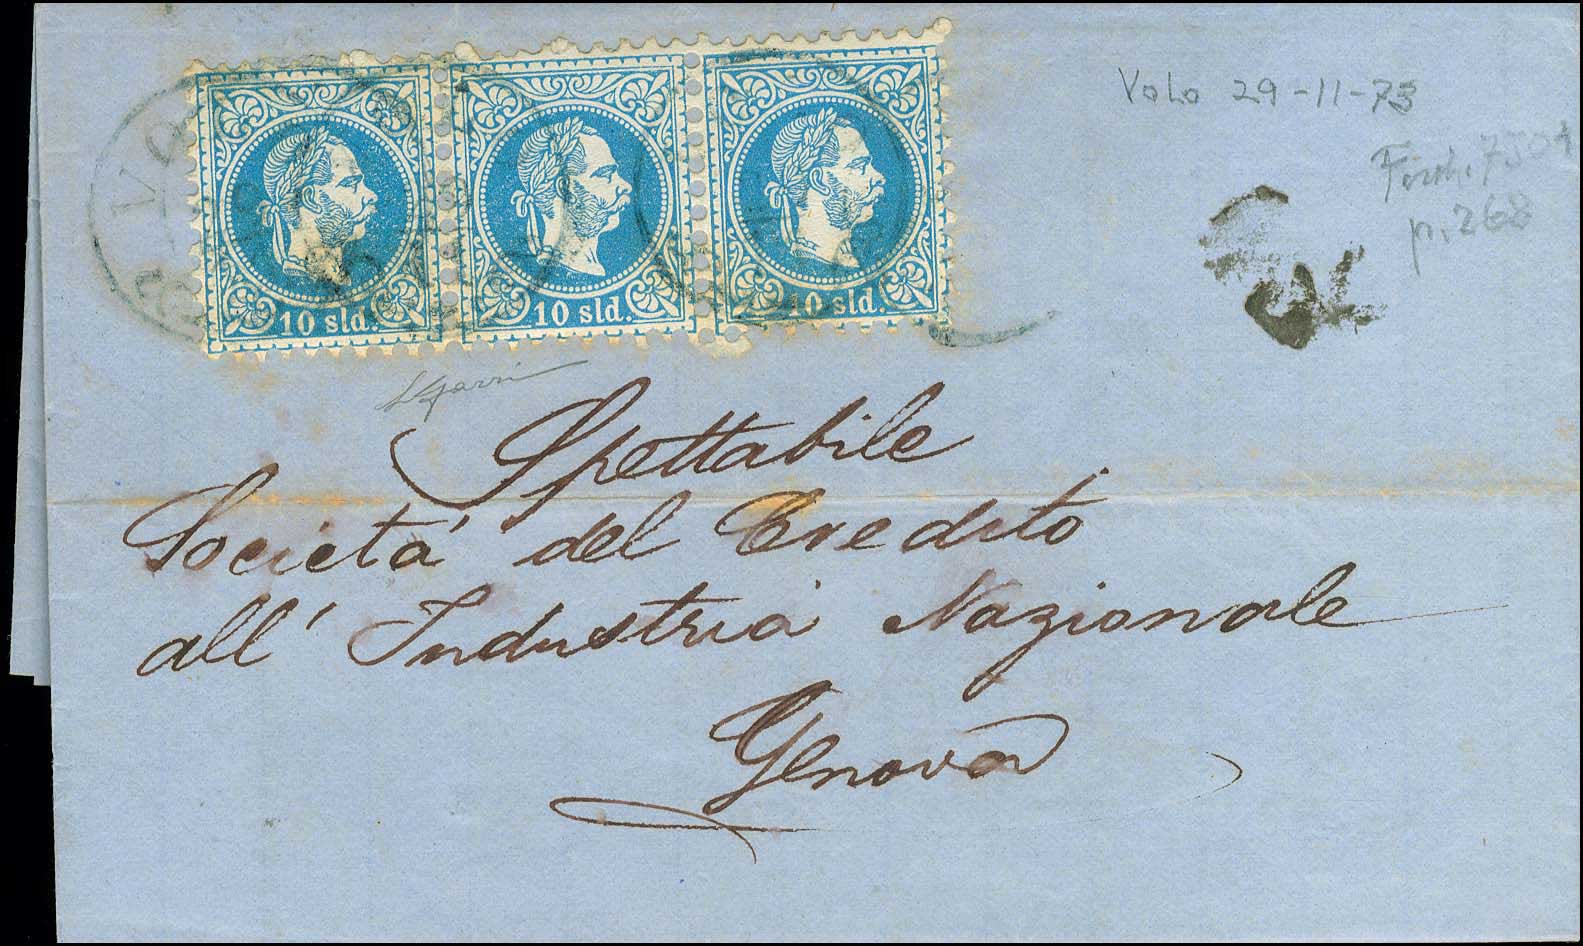 Volo 29-11-75
p. 268
10 sld. 10 sld. 10 sld.
Spettabile
Società del Credito
all' Industria Nazionale
Genova